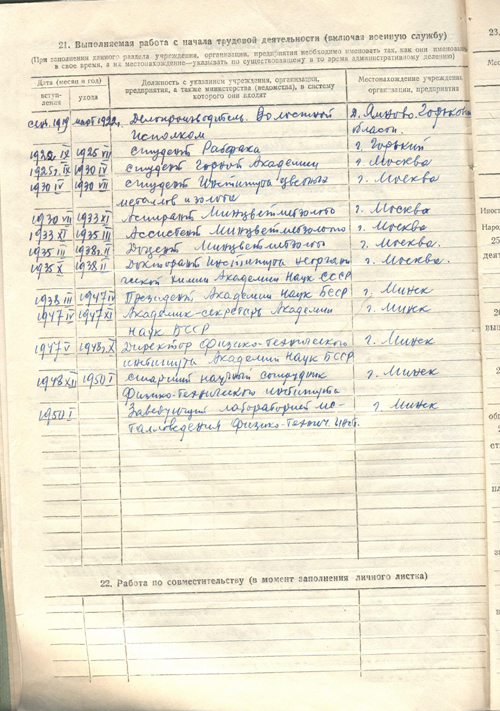 21. Выполняемая работа с начала трудовой деятельности (включая военную службу)
(При заполнении данного раздела учреждения, организации, предприятия необходимо именовать так, как они именовались
в свое время, а их местонахождение—указывать по существующему в то время административному делению)
Дата (месяц и год)
вступления
ухода
Должность с указанием учреждения, организации,
предприятия, а также министерства (ведомства), в систему
которого они входят
Местонахождение учреждения,
организации, предприятия
сен. 1919 март 1922 Делопроизводитель Волостной д. Яново Горьков
исполком области.
1922 IX 1925 VII студент Рабфака г. Горький
1925 г. IX 1930 IV студент Горной Академии г. Москва
1930 IV 1930 VII студент Института цветных г. Москва
металов и золота
1930 VII 1933 XI Аспирант Минцветметзолото г. Москва
1933 XI 1935 III Ассистент Минцветметзолото г. Москва
1935 III 1938 г. II Доцент Минцветметзолото г. Москва.
1935 X 1938 II Докторант Института неоргани г. Москва.
ческой химии Академии Наук СССР
1938 III 1947 IV Президент Академии наук БССР г. Минск
1947 IV 1947 XI Академик-секретарь Академии г. Минск
наук БССР
1947 V 1948 г. X Директор физико-технического г. Минск
института Академии Наук БССР
1948 XII 1950 I старший научный сотрудник г. Минск
Физико-технического института
1950 I Заведующий лабораторией ме- г. Минск
талловедения Физико-технич. инст.
22. Работа по совместительству (в момент заполнения личного листка)